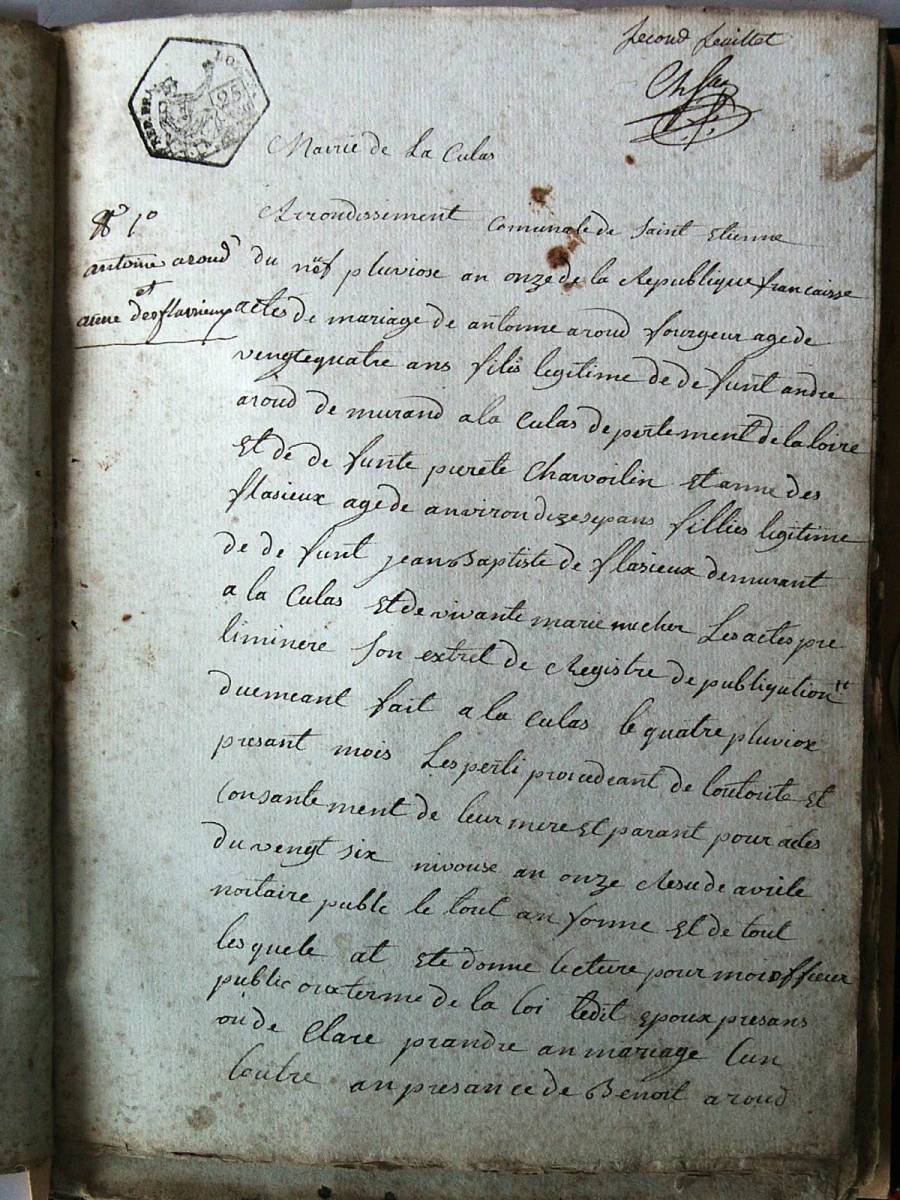 Second feuillet
REP. FRA
25
Mairie de La Culas
Arrondissement Comunale de Saint Etienne
N° 1er
antoine aroud
et
anne desflassieux
du nëf pluviose an onze de la Republique francaisse
actes de mariage de antoinne aroud fourgeur age de
vengtequatre ans filis legitime de de funt andre
aroud de murand a la Culas depertement de la loire
Et de de funte pierete Charvoilin et anne des
flasieux age de anviron dizesepans fillies legitime
de de funt jean Baptiste de flasieux demurant
a la Culas Et de vivante marie micher Les actes pre
liminere Son extret de Registre de publiqation
duemeant fait a la Culas le quatre pluviox
presant mois Les perti procedeant de loutorite Et
Consantement de leur mere Et parant pour actes
du vengt six nivouse an onze Resu de avrile
noitaire public le tout an forme Et de tout
les quele at Ete donne lecture pour moi officier
public ou terme de la loi ledit Epoux presans
on de Clare prandre an mariage lun
loutre an presance de Benoit aroud